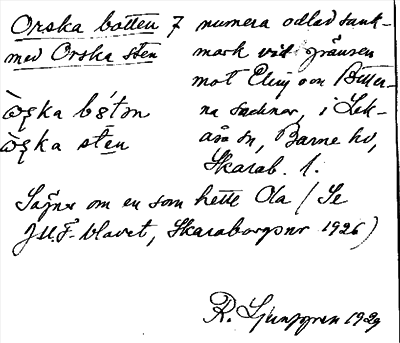 Orska botten 7 numera odlad sank-
med Orska sten mark vid gränsen
mot Eling och Bitter-
na socknar, i Lek-
åsa sn, Barne hd,
Skarab. l.
Sägner om en som hette Ola (Se
J.U.F-bladet, Skaraborgsnr 1926)
R. Ljunggren 1929